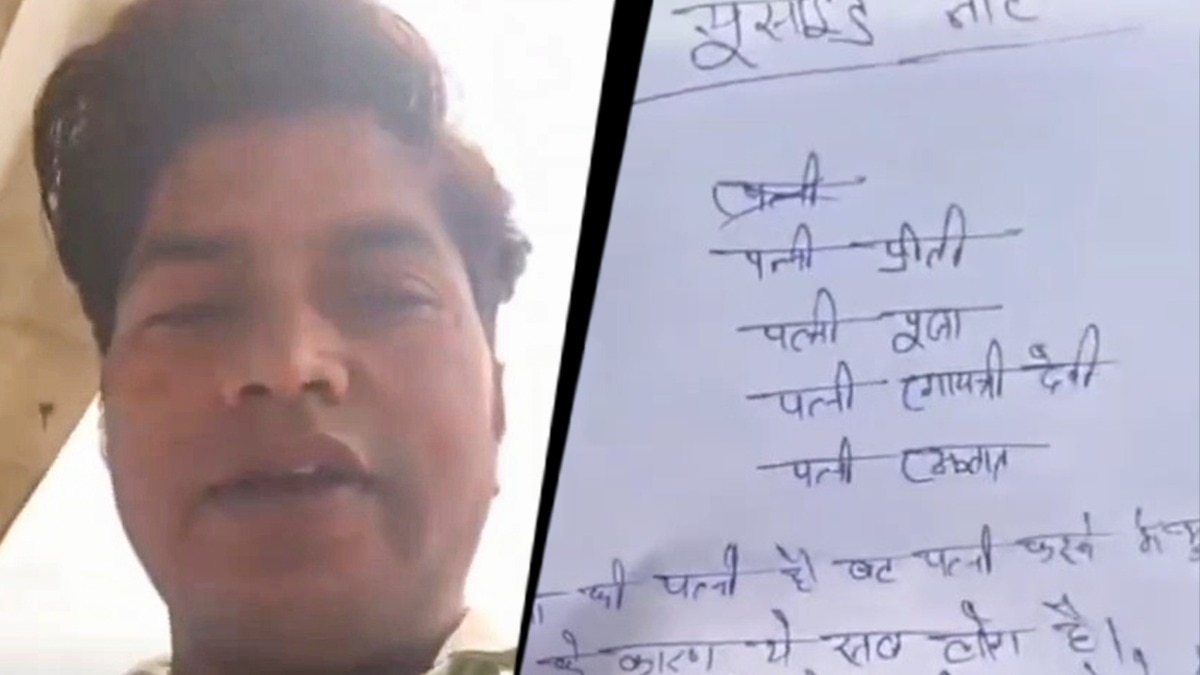 सूसाइड नोट
पत्नी
पत्नी प्रीती
पत्नी पूजा
पत्नी गायत्री देवी
पत्नी
की पत्नी है पत्नी
के कारण ये सब लोग है।